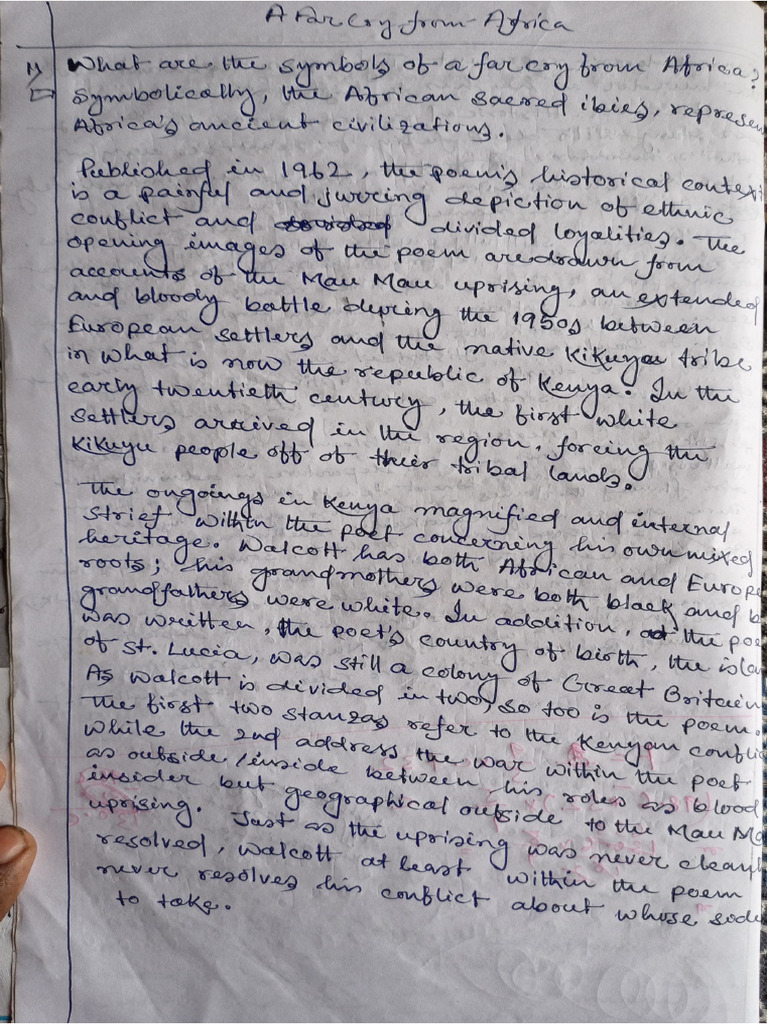 A Far Cry from Africa
1) What are the symbols of a far cry from Africa?
Symbolically, the African sacred ibies, represen
Africa's ancient civilizations.
Published in 1962, the poem's historical contex
is a painful and jurring depiction of ethnic
conflict and divided loyalities. The
opening images of the poem are drawn from
accounts of the Mau Mau uprising, an extended
and bloody battle depring the 1950s between
European settlers and the native Kikuyu tribe
in what is now the republic of Kenya. In the
early twentieth century, the first white
settlers arrived in the region, forcing the
Kikuyu people off of their tribal lands.
The ongoings in Kenya magnified and internal
strief within the poet concerning his own mixed
heritage. Walcott has both African and Europe
roots; his grandmothers were both black and b
grandfathers were white. In addition, at the poe
was written, the poet's country of birth, the isla
of St. Lucia, was still a colony of Great Britain
As Walcott is divided in two, so too is the poem.
The first two stanzas refer to the Kenyan conflic
while the 2nd address the war within the poet
as outside/inside between his roles as blood
insider but geographical outside to the Mau Ma
uprising. Just as the uprising was never clean
resolved, Walcott at least within the poem
never resolves his conflict about whose side
to take.